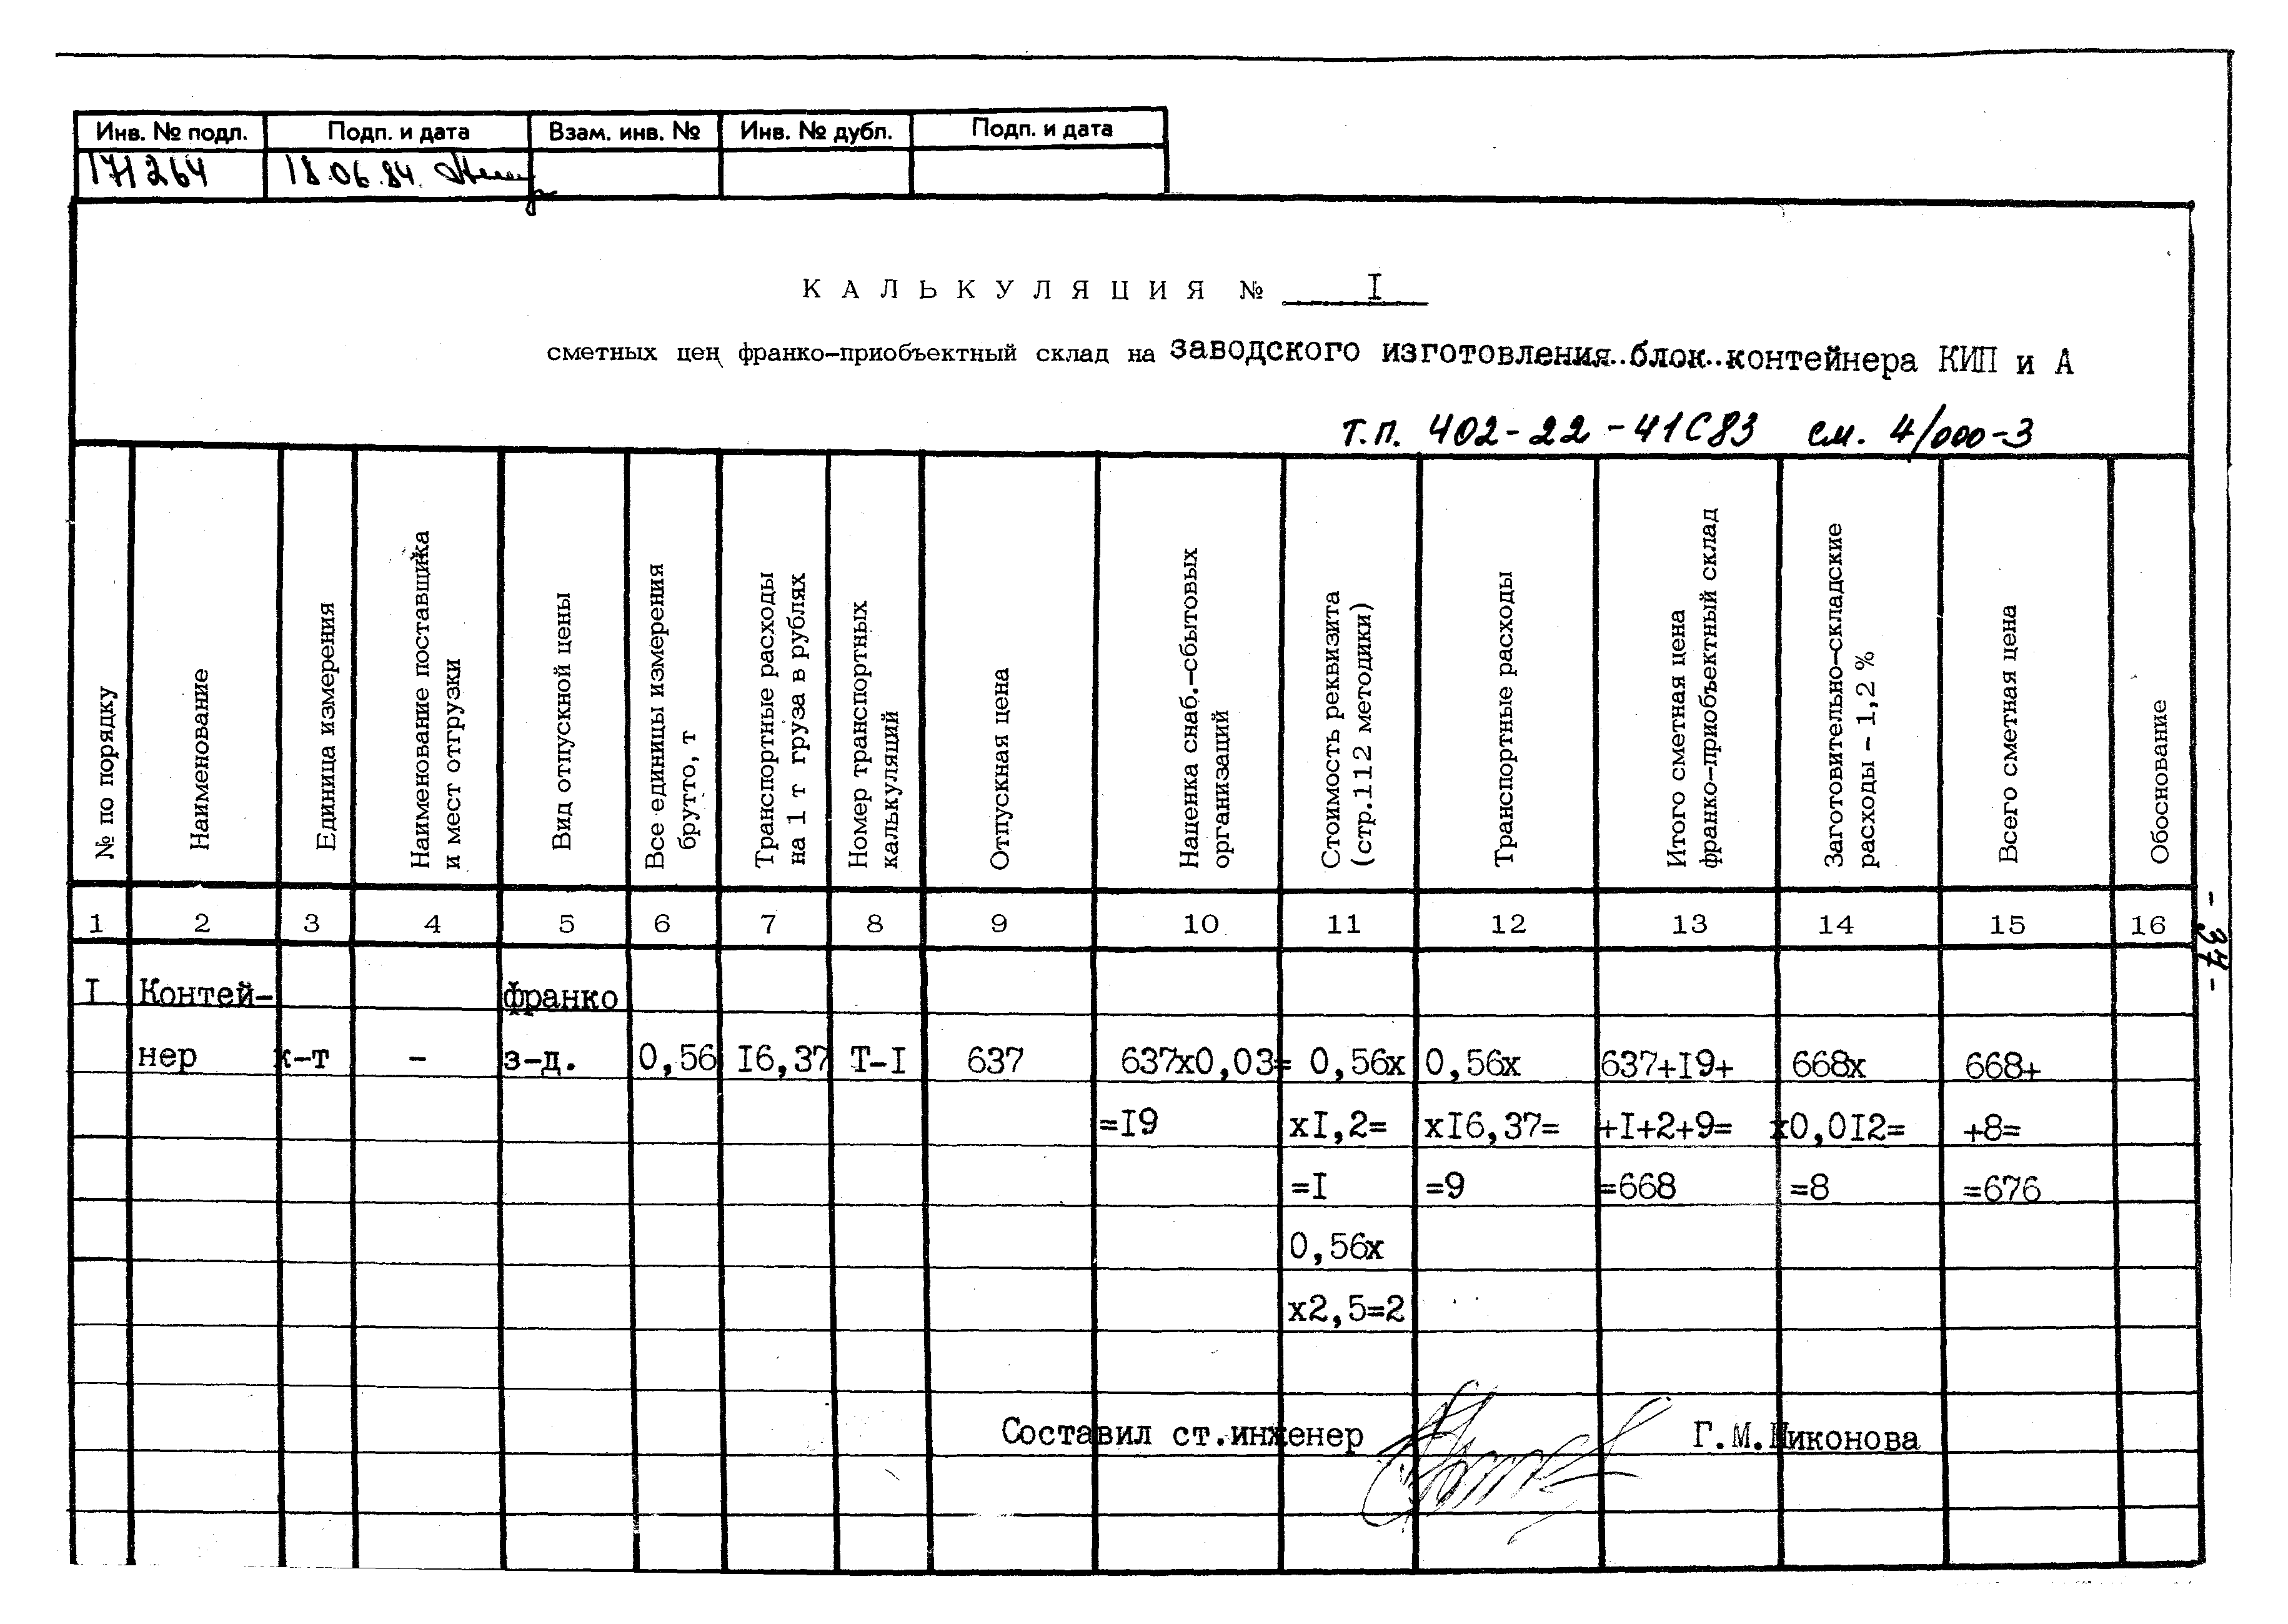 Инв. № подл. Подп. и дата Взам. инв. № Инв. № дубл. Подп. и дата
171264 18.06.84.
К А Л Ь К У Л Я Ц И Я № I
сметных цен франко-приобъектный склад на заводского изготовления..блок..контейнера КИП и А
Т.П. 402-22-41С83 см. 4/000-3
№ по порядку
Наименование
Единица измерения
Наименование поставщика
и мест отгрузки
Вид отпускной цены
Все единицы измерения
брутто, т
Транспортные расходы
на 1 т груза в рублях
Номер транспортных
калькуляций
Отпускная цена
Наценка снаб.-сбытовых
организаций
Стоимость реквизита
(стр.112 методики)
Транспортные расходы
Итого сметная цена
франко-приобъектный склад
Заготовительно-складские
расходы - 1,2 %
Всего сметная цена
Обоснование
1 2 3 4 5 6 7 8 9 10 11 12 13 14 15 16
- 37 -
I Контей- франко
нер к-т - з-д. 0,56 I6,37 Т-I 637 637х0,03= 0,56х 0,56х 637+I9+ 668х 668+
=I9 хI,2= хI6,37= +I+2+9= х0,0I2= +8=
=I =9 =668 =8 =676
0,56х
х2,5=2
Составил ст.инженер Г.М.Никонова